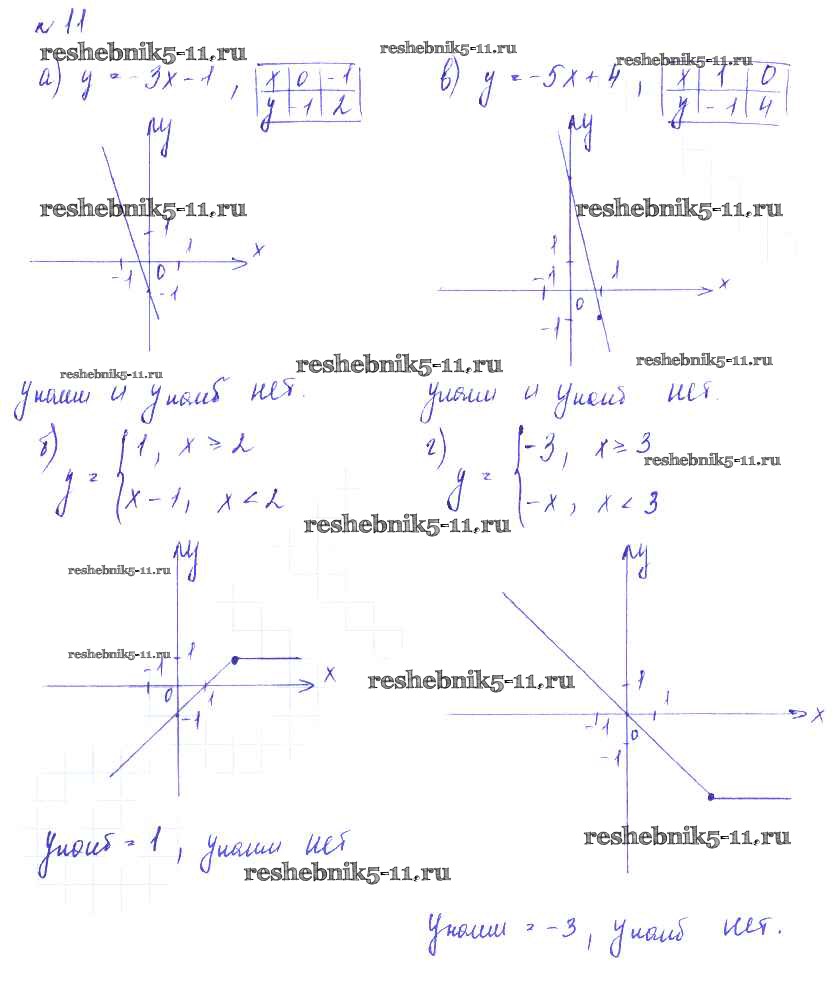 № 11
reshebnik5-11.ru reshebnik5-11.ru reshebnik5-11.ru
а) y = -3x-1, x 0 -1
y -1 2
в) y = -5x+4, x 1 0
y -1 4
y
reshebnik5-11.ru
1
1
x
-1 0
-1
y
reshebnik5-11.ru
1
-1 1
x
0
-1
reshebnik5-11.ru reshebnik5-11.ru reshebnik5-11.ru
yнаим и yнаиб нет.
yнаим и yнаиб нет.
б) y = { 1, x ≥ 2
x-1, x < 2
г) y = { -3, x ≥ 3
reshebnik5-11.ru
-x, x < 3
reshebnik5-11.ru
y
reshebnik5-11.ru
reshebnik5-11.ru
-1 1
x
0 1
-1
y
reshebnik5-11.ru
1
1
x
-1 0
-1
yнаиб = 1, yнаим нет
reshebnik5-11.ru
reshebnik5-11.ru
yнаим = -3, yнаиб нет.